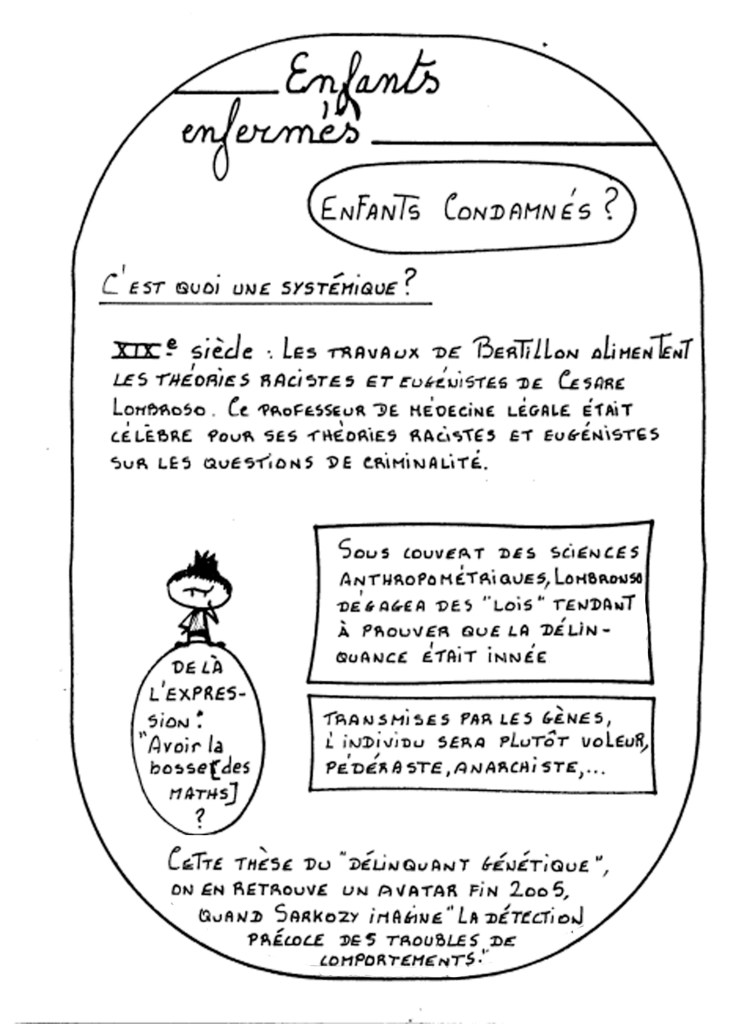 Enfants
enfermés
ENFANTS CONDAMNÉS ?
C'EST QUOI UNE SYSTÉMIQUE ?
XIXe siècle : LES TRAVAUX DE BERTILLON ALIMENTENT
LES THÉORIES RACISTES ET EUGÉNISTES DE CESARE
LOMBROSO. CE PROFESSEUR DE MÉDECINE LÉGALE ÉTAIT
CÉLÈBRE POUR SES THÉORIES RACISTES ET EUGÉNISTES
SUR LES QUESTIONS DE CRIMINALITÉ.
SOUS COUVERT DES SCIENCES
ANTHROPOMÉTRIQUES, LOMBRONSO
DÉGAGEA DES "LOIS" TENDANT
À PROUVER QUE LA DÉLIN-
QUANCE ÉTAIT INNÉE
DE LÀ
L'EXPRES-
SION :
"Avoir la
bosse [des
MATHS]
?
TRANSMISES PAR LES GÈNES,
L'INDIVIDU SERA PLUTÔT VOLEUR,
PÉDÉRASTE, ANARCHISTE,...
CETTE THÈSE DU "DÉLINQUANT GÉNÉTIQUE",
ON EN RETROUVE UN AVATAR FIN 2005,
QUAND SARKOZY IMAGINE "LA DÉTECTION
PRÉCOCE DES TROUBLES DE
COMPORTEMENTS."